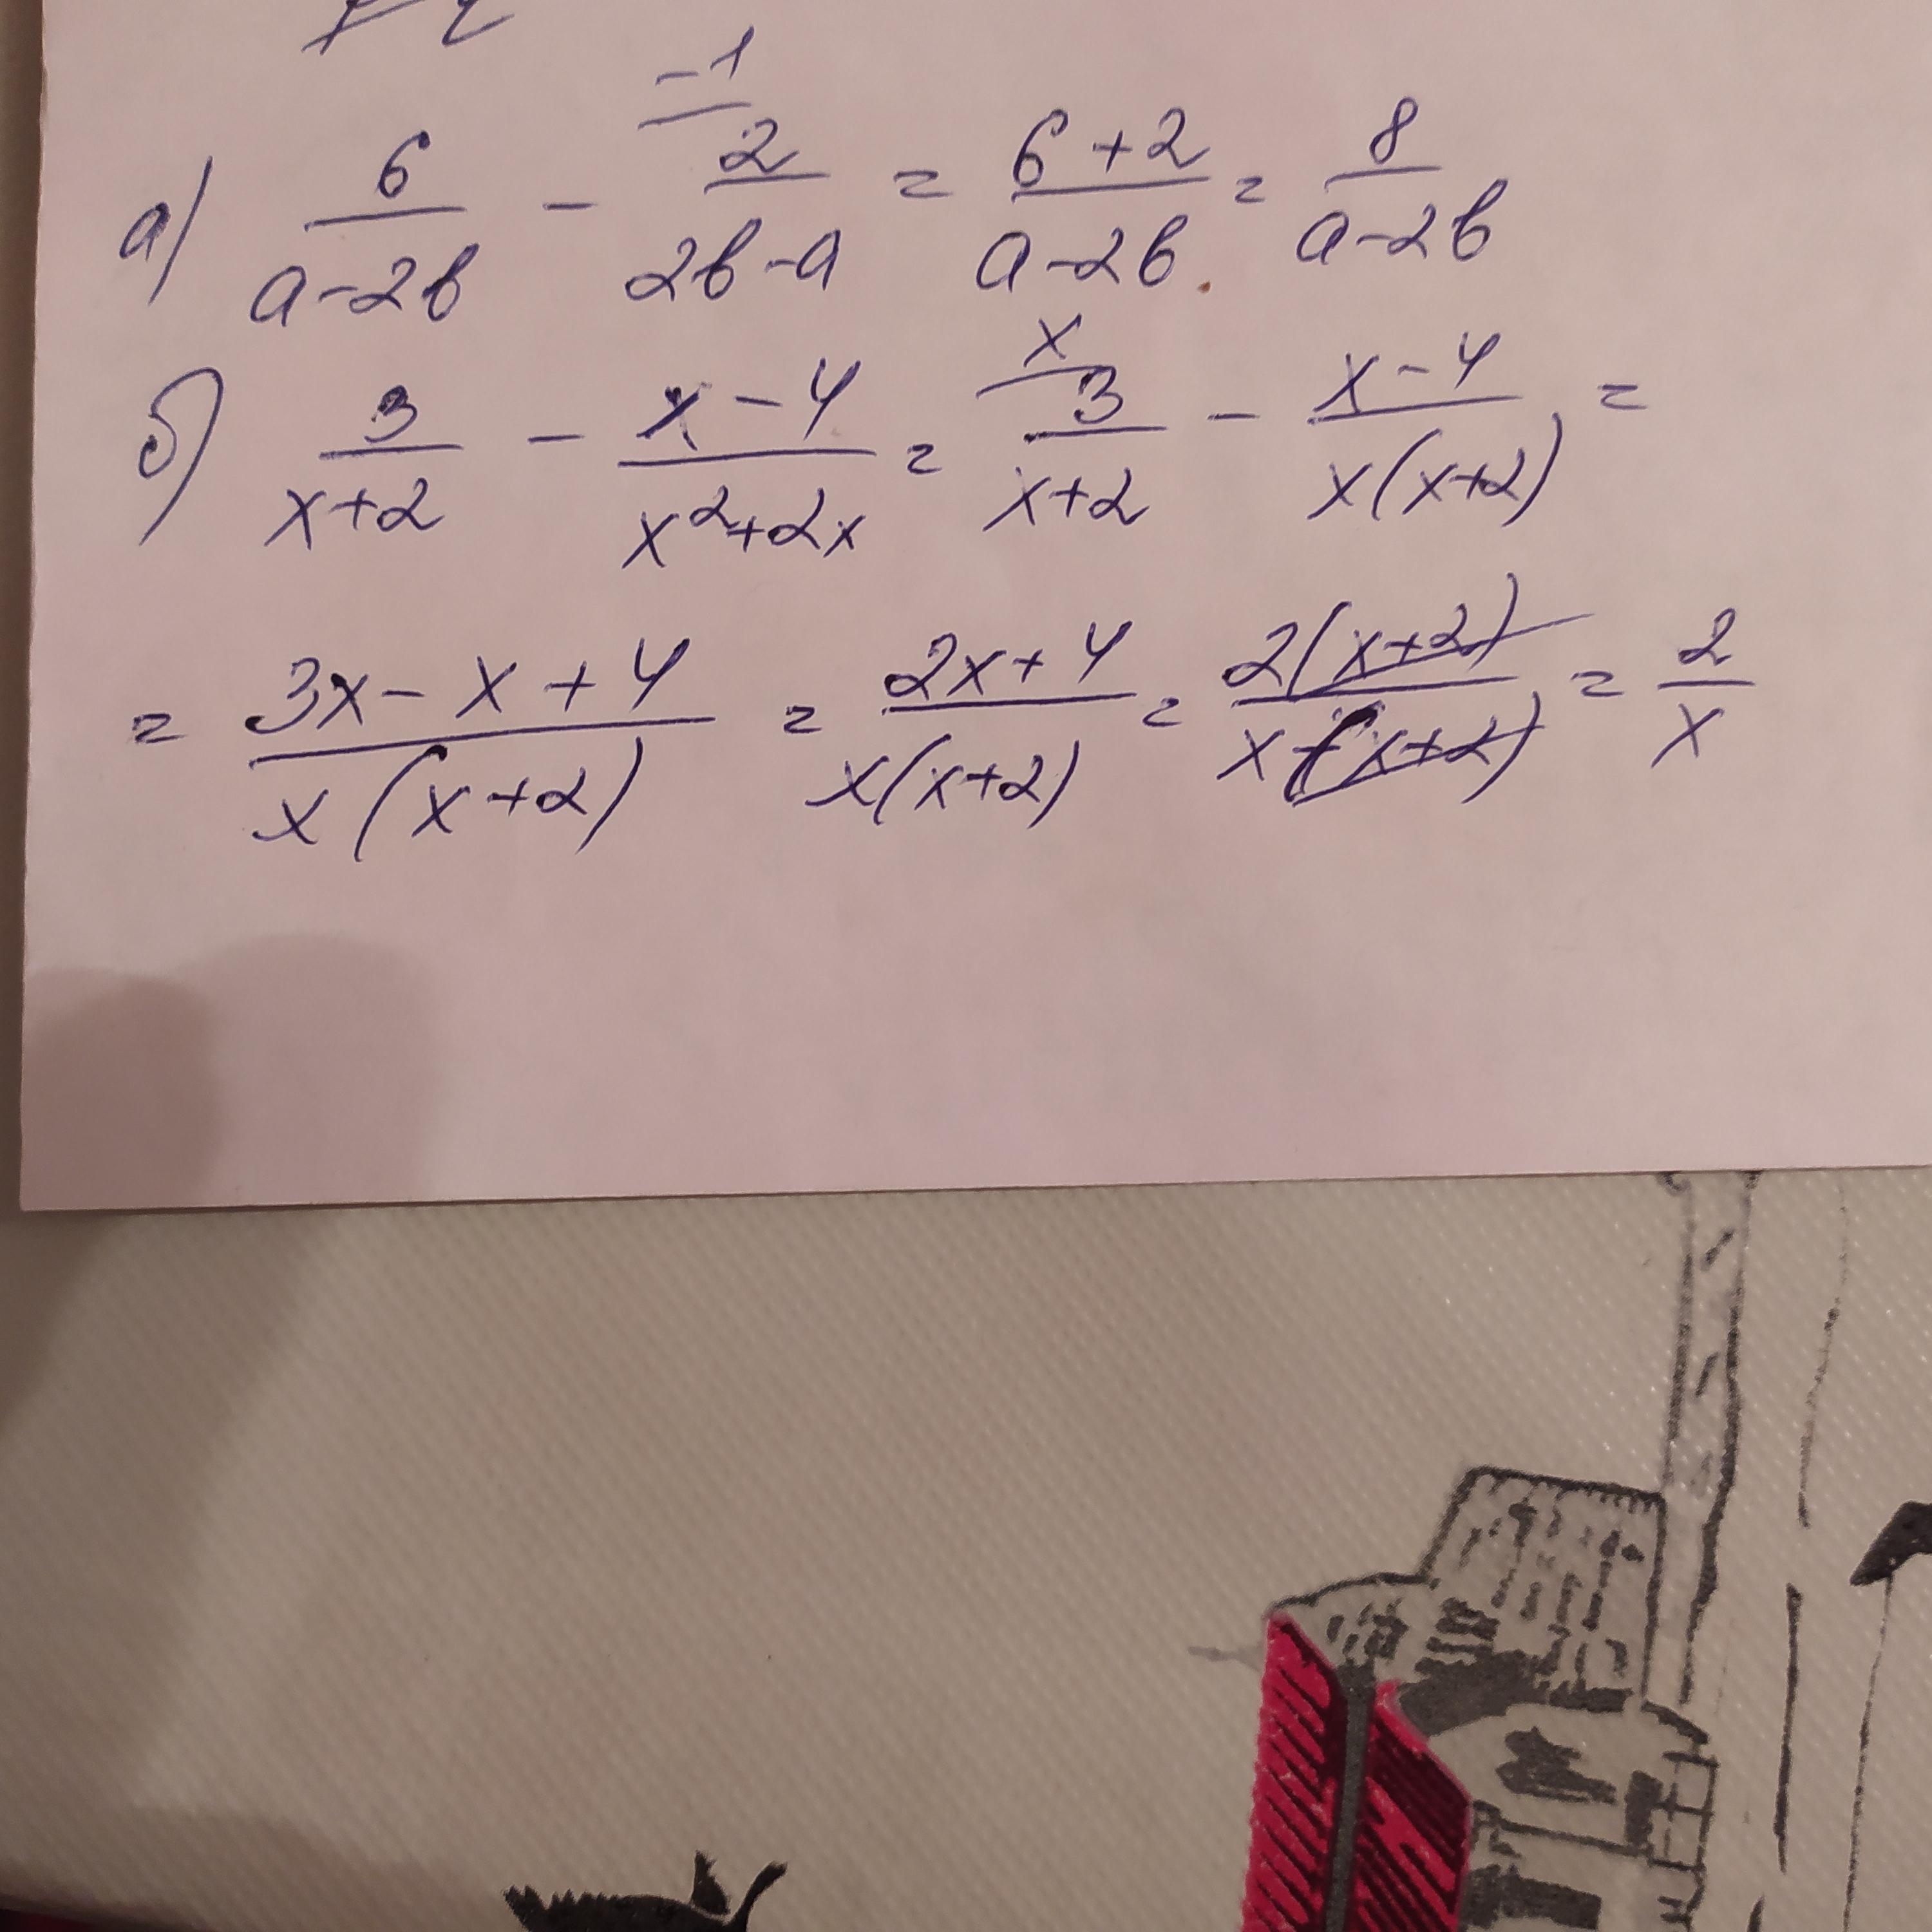 -1
а) 6/(a-2b) - 2/(2b-a) = (6+2)/(a-2b) = 8/(a-2b)
x
б) 3/(x+2) - (x-4)/(x²+2x) = 3/(x+2) - (x-4)/(x(x+2)) =
= (3x-x+4)/(x(x+2)) = (2x+4)/(x(x+2)) = 2(x+2)/(x(x+2)) = 2/x